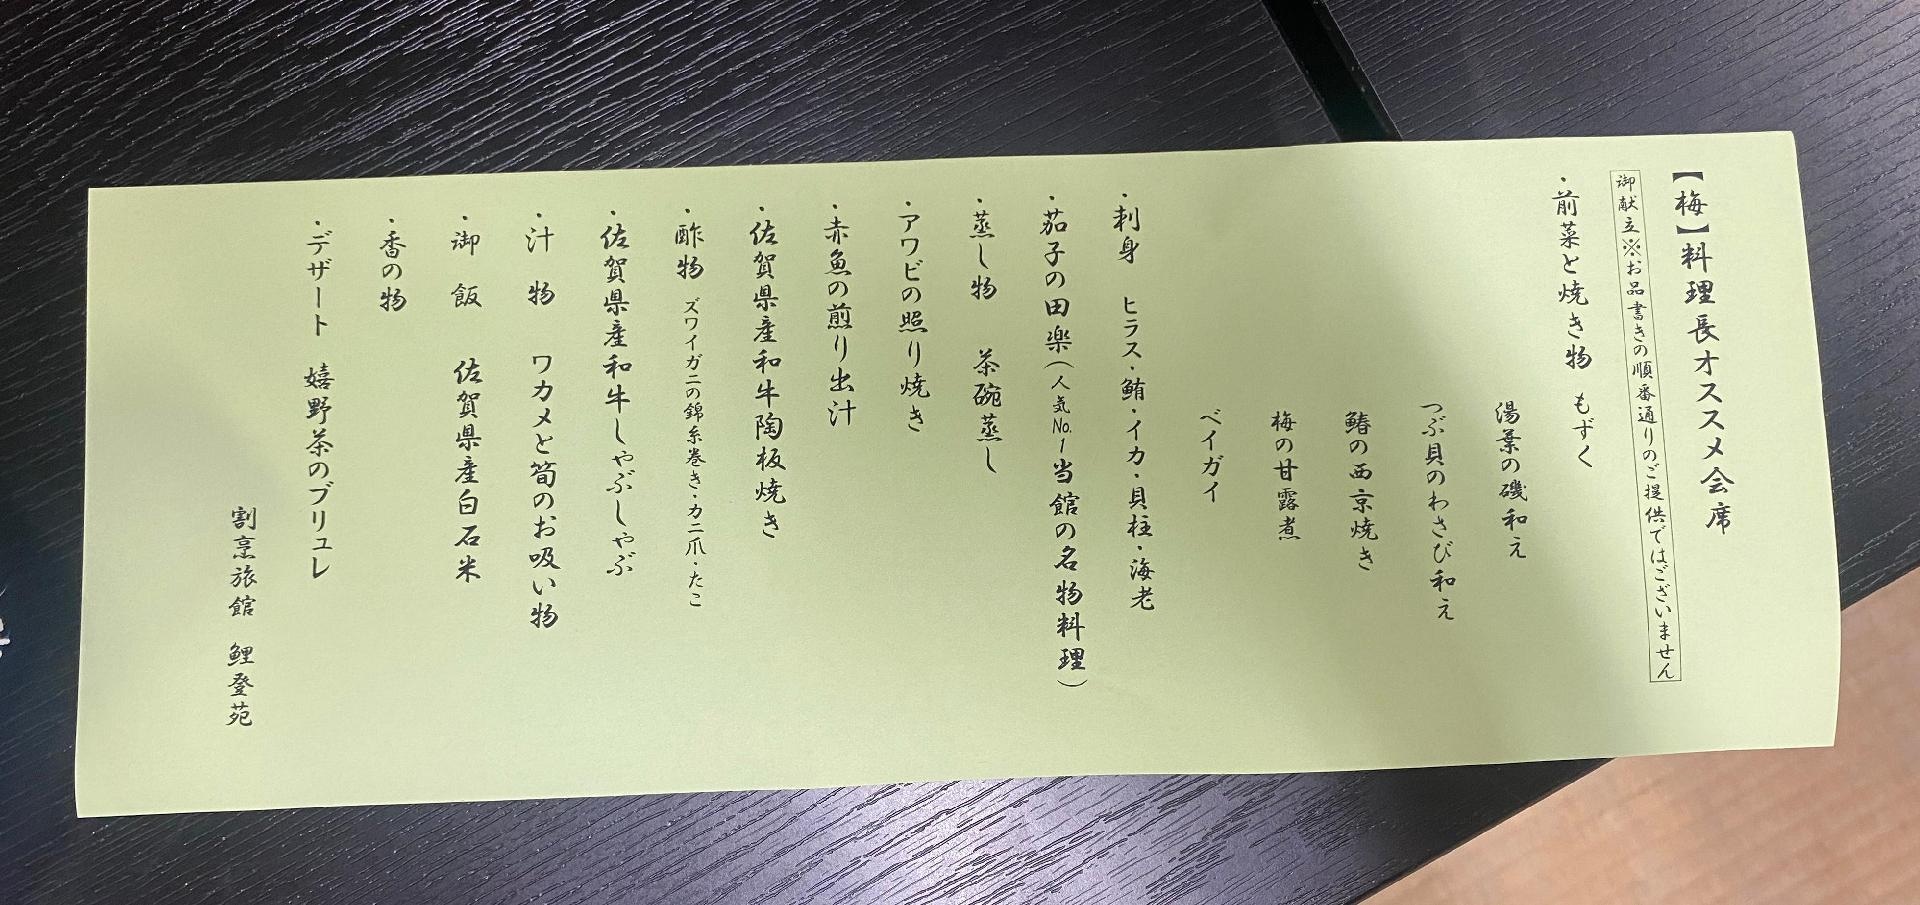 【梅】料理長オススメ会席
御献立※お品書きの順番通りのご提供ではございません
・前菜と焼き物 もずく
湯葉の磯和え
つぶ貝のわさび和え
鰆の西京焼き
梅の甘露煮
ベイガイ
・刺身 ヒラス・鮪・イカ・貝柱・海老
・茄子の田楽(人気No.1当館の名物料理)
・蒸し物 茶碗蒸し
・アワビの照り焼き
・赤魚の煎り出汁
・佐賀県産和牛陶板焼き
・酢物 ズワイガニの錦糸巻き・カニ爪・たこ
・佐賀県産和牛しゃぶしゃぶ
・汁 物 ワカメと筍のお吸い物
・御 飯 佐賀県産白石米
・香の物
・デザート 嬉野茶のブリュレ
割烹旅館 鯉登苑